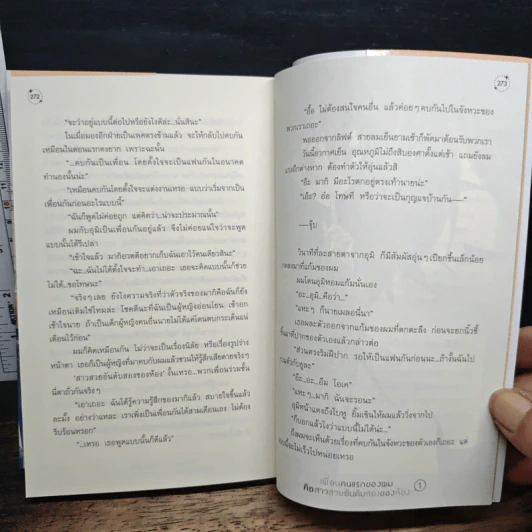 272
"จะว่าอยู่แบบนี้ต่อไปหรือยังไงดีล่ะ...นั่นสินะ"
ในเมื่อมองอีกฝ่ายเป็นเพศตรงข้ามแล้ว จะให้กลับไปคบกัน
เหมือนในตอนแรกคงยาก เพราะฉะนั้น
"...คบกันเป็นเพื่อน โดยตั้งใจจะเป็นแฟนกันในอนาคต
ทำนองนั้นน่ะ"
"เหมือนคบกันโดยตั้งใจจะแต่งงานเหรอ แบบว่าเริ่มจากเป็น
เพื่อนกันก่อนอะไรแบบนี้"
"ฉันก็พูดไม่ค่อยถูก แต่คิดว่า..น่าจะประมาณนั้น"
ผมกับอุมิเป็นเพื่อนกันอยู่แล้ว จึงไม่ค่อยแน่ใจว่าจะพูด
แบบนั้นได้รึเปล่า
"เข้าใจแล้ว มากิอวดดียยากเก็บฉันเอาไว้คนเดียวสินะ"
"ฉะ...ฉันไม่ได้ตั้งใจจะทำ...เอาเถอะ เธอจะคิดแบบนั้นก็ช่วย
ไม่ได้..ขอโทษนะ"
"จริงๆ เลย ยังไงความจริงที่ว่าตัวจริงของมากิคือฉันก็ยัง
เหมือนเดิมใช่ไหมล่ะ โชคดีนะที่ฉันเป็นผู้หญิงอ่อนโยน เข้าอก
เข้าใจนาย ถ้าเป็นเด็กผู้หญิงคนอื่นนายไม่ได้แค่โดนตบกระเด็นแน่
เตือนไว้ก่อน"
ผมก็คิดเหมือนกัน ไม่ว่าจะเป็นเรื่องนิสัย หรือเรื่องรูปร่าง
หน้าตา เธอก็เป็นผู้หญิงที่มาคบกับผมแล้วชวนให้รู้สึกเสียดายจริงๆ
'สาวสวยอันดับสองของห้อง' งั้นเหรอ...พวกเพื่อนร่วมชั้น
นี่ตาถั่วกันจริงๆ
"เอาเถอะ ฉันได้รู้ความรู้สึกของมากิแล้ว สบายใจขึ้นแล้ว
ละมั้ง อย่างว่าแหละ เราเพิ่งเป็นเพื่อนกันได้สามเดือนเอง ไม่ต้อง
รีบร้อนหรอก"
"...เหรอ เธอพูดแบบนั้นก็ดีแล้ว"
273
"อื้อ ไม่ต้องสนใจคนอื่น แล้วค่อยๆ คบกันไปในจังหวะของ
พวกเราเถอะ"
พอออกจากลิฟต์ สายลมเย็นยามเช้าก็พัดมาต้อนรับพวกเรา
วันนี้อากาศเย็น อุณหภูมิไม่ถึงสิบองศาตั้งแต่เช้า แถมยังลม
แรงอีกต่างหาก ต้องทำตัวให้อุ่นแล้วสิ
"อ๊ะ มากิ มีอะไรตกอยู่ตรงเท้านายน่ะ"
"เอ๊ะ? อ๋อ โทษที หรือว่าจะเป็นกุญแจบ้านกัน—"
——จุ๊บ
วินาทีที่ละสายตาจากอุมิ ก็มีสัมผัสอุ่นๆ เปียกชื้นเล็กน้อย
กดลงมาที่แก้มของผม
ผมโดนอุมิหอมแก้มนั่นเอง
"อะ...อุมิ..คือว่า..."
"แหะๆ ก็นายเผลอนี่นา"
เธอผละตัวออกจากแก้มของผมที่ตกตะลึง ก่อนจะยกนิ้วชี้
ขึ้นมาที่ปากของตัวเองแล้วกล่าวต่อ
"ส่วนตรงริมฝีปาก รอให้เป็นแฟนกันก่อนนะ...ถ้างั้นฉันไป
รวมตัวกับยูละ"
"อ๊ะ...อะ...อืม โอเค"
"แหะๆ...มากิ ฉันจะรอนะ"
อุมิหน้าแดงถึงใบหู ยิ้มเขินให้ผมแล้ววิ่งจากไป
"ก็บอกแล้วไงว่าแบบนี้ไม่ได้น่ะ..."
ก็ผมจะเห็นด้วยเรื่องที่คบกันในจังหวะของตัวเองก็เถอะ แต่
แบบนี้จะไม่เร็วไปหน่อยเหรอ
เพื่อนคนแรกของผม
คือสาวสวยอันดับสองของห้อง
1